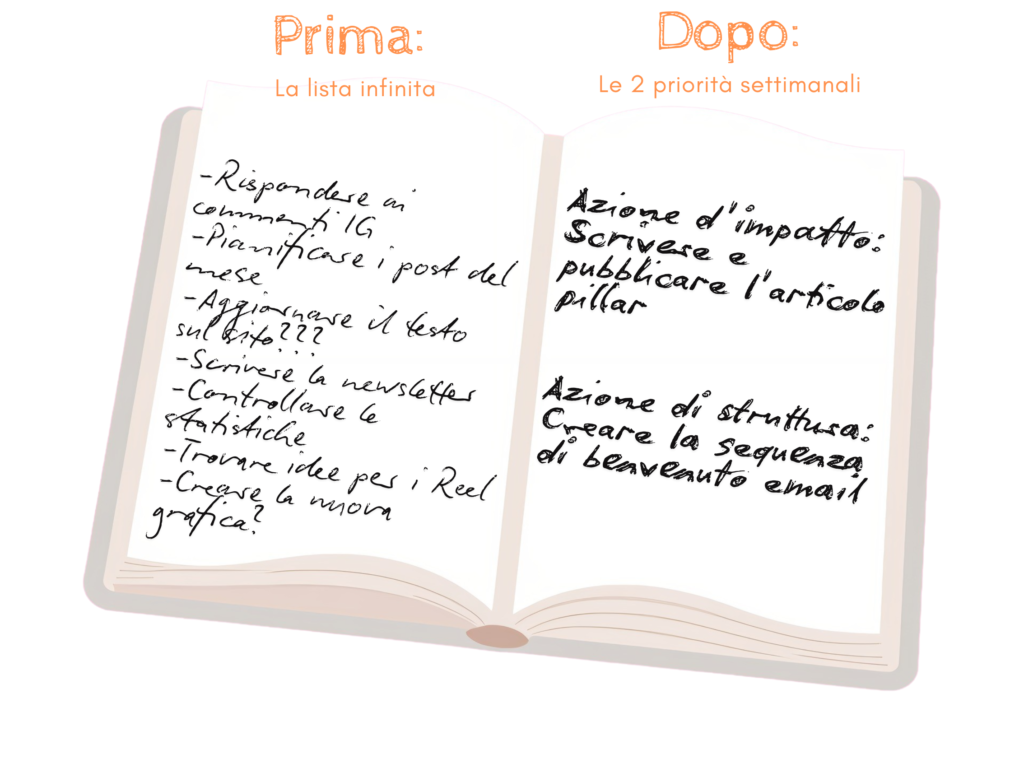 Prima:
La lista infinita
-Rispondere ai
commenti IG
-Pianificare i post del
mese
-Aggiornare il testo
sul sito???
-Scrivere la newsletter
-Controllare le
statistiche
-Trovare idee per i Reel
-Creare la nuova
grafica?
Dopo:
Le 2 priorità settimanali
Azione d'impatto:
Scrivere e
pubblicare l'articolo
pillar
Azione di struttura:
Creare la sequenza
di benvenuto email